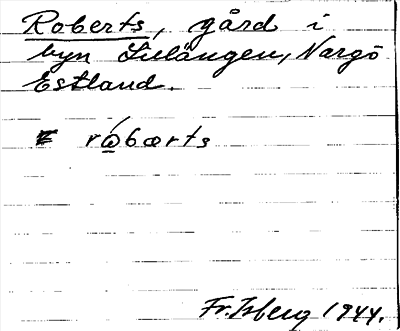 Roberts, gård i
byn Lillängen, Nargö
Estland.
rá̱bærts
Fr. Isberg 1944.